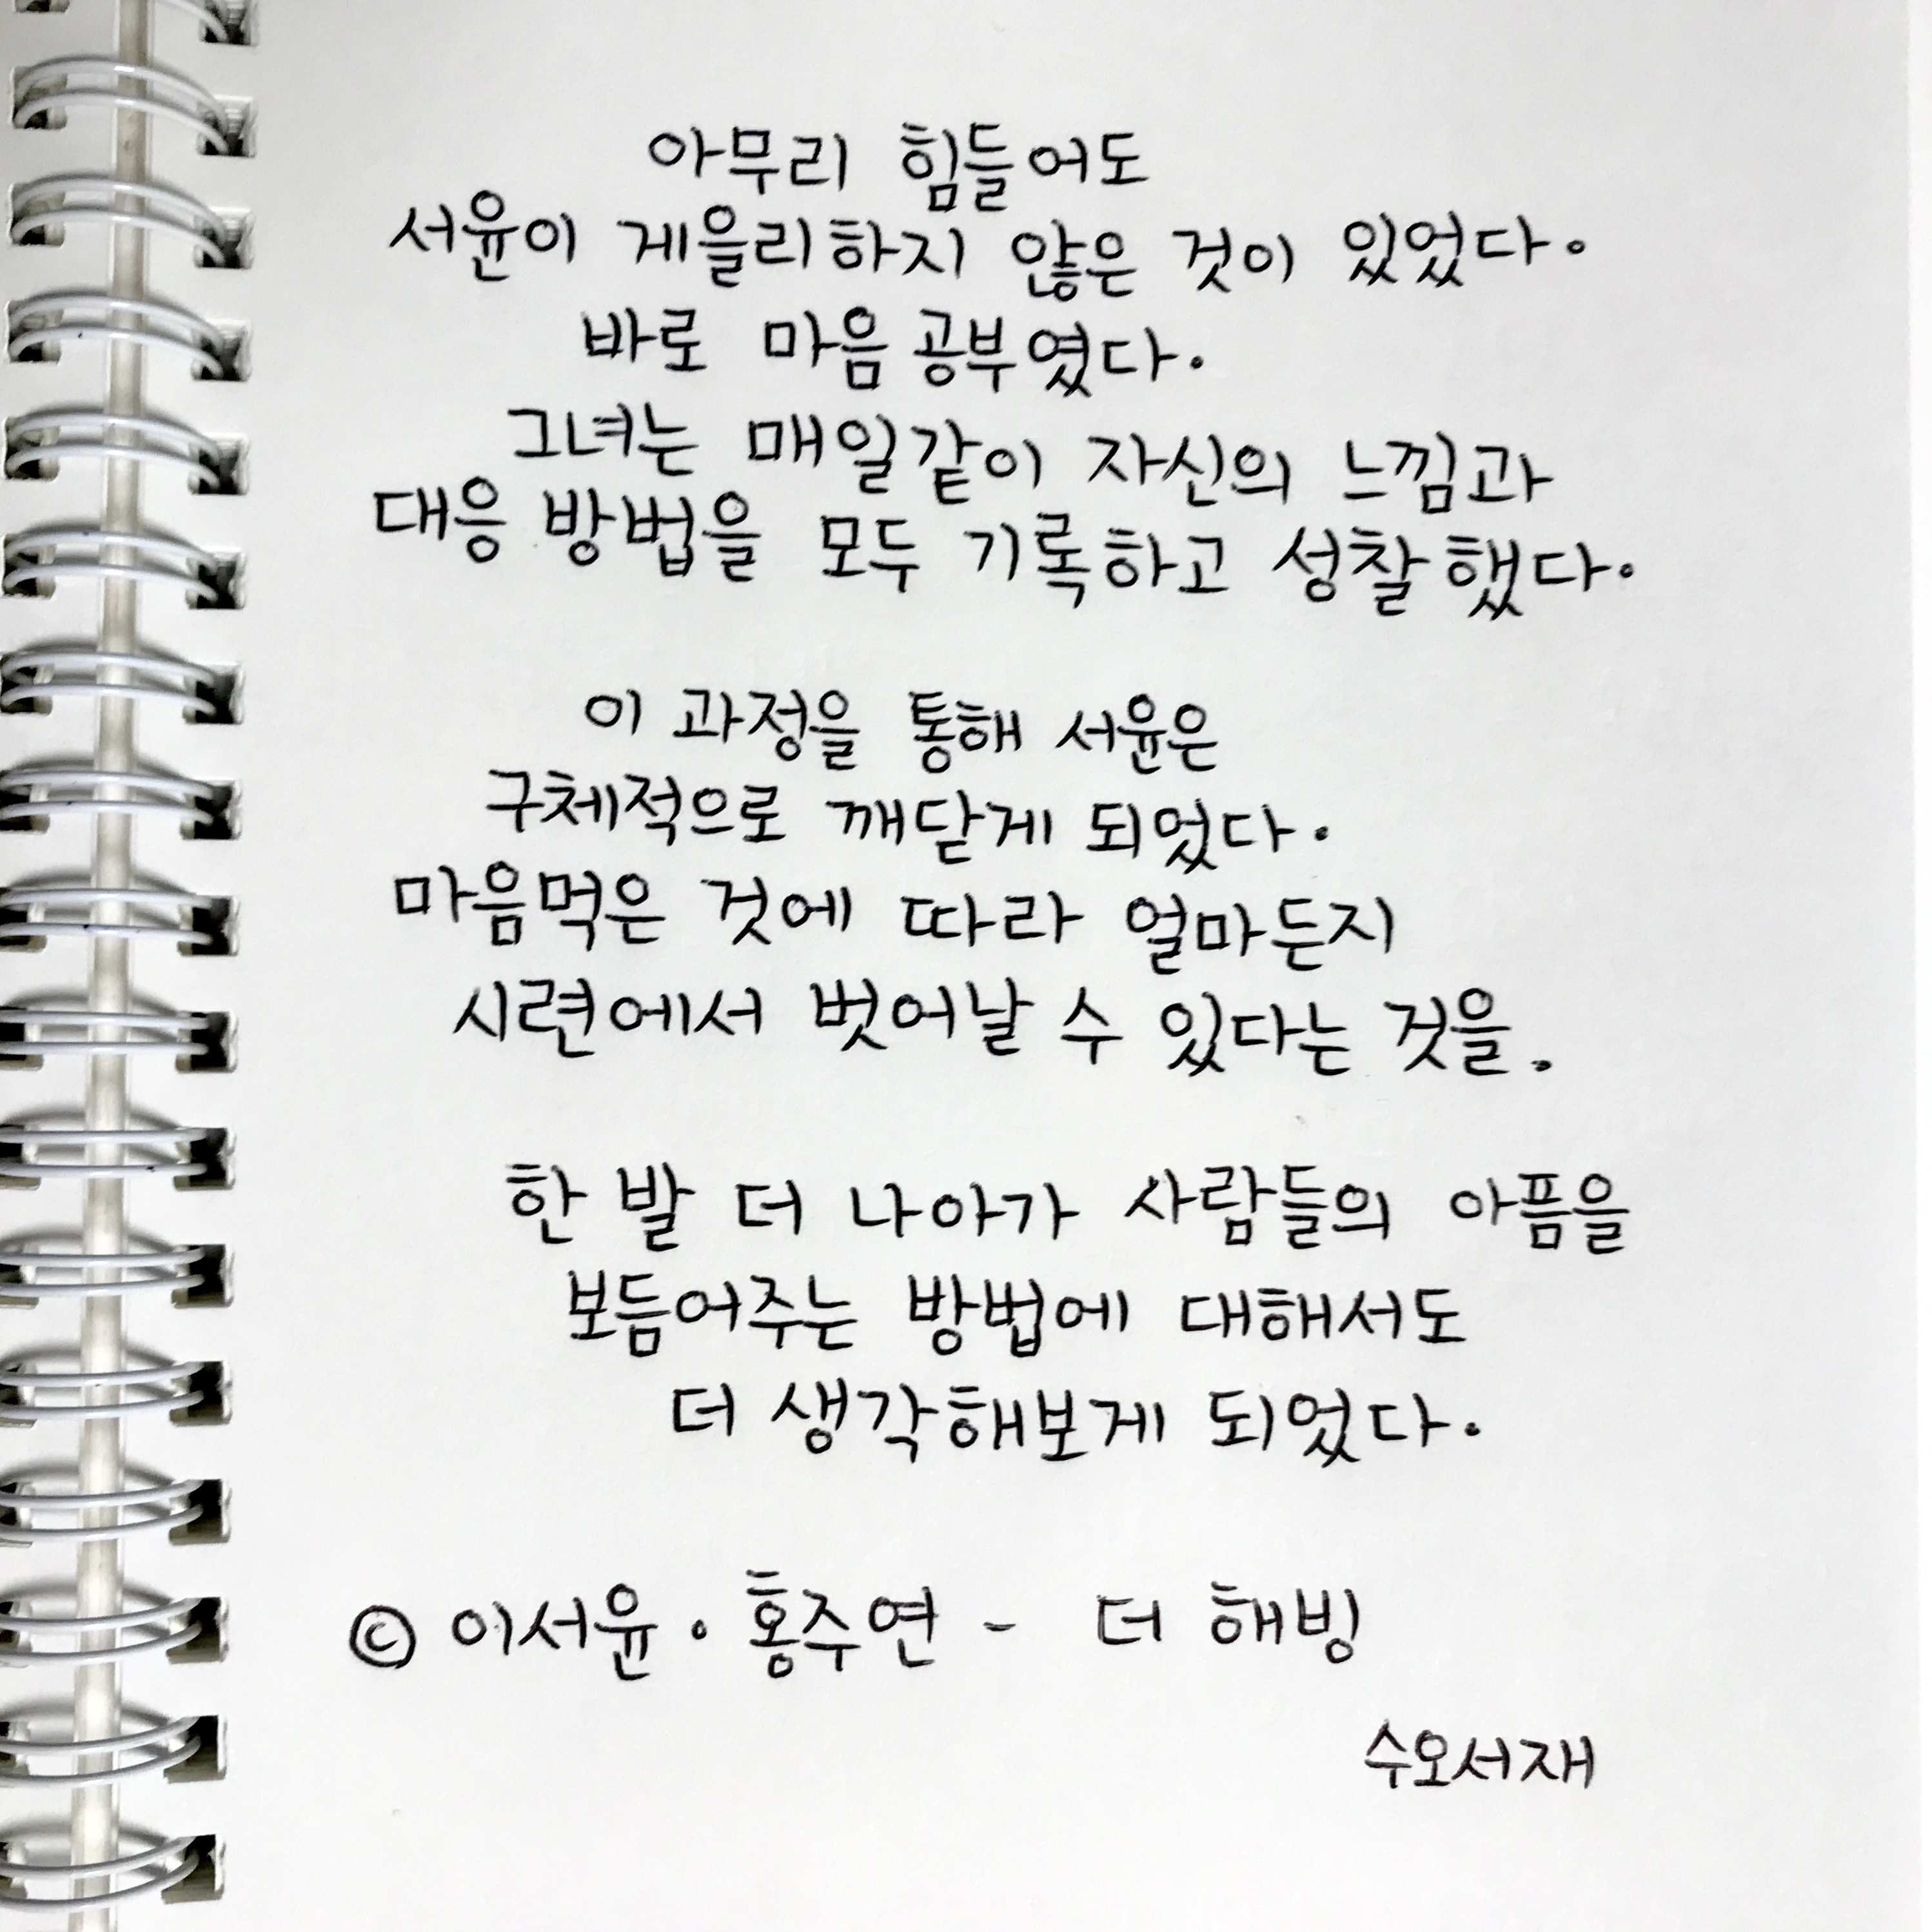 아무리 힘들어도
서윤이 게을리하지 않은 것이 있었다.
바로 마음 공부였다.
그녀는 매일같이 자신의 느낌과
대응 방법을 모두 기록하고 성찰했다.
이 과정을 통해 서윤은
구체적으로 깨닫게 되었다.
마음먹은 것에 따라 얼마든지
시련에서 벗어날 수 있다는 것을.
한 발 더 나아가 사람들의 아픔을
보듬어주는 방법에 대해서도
더 생각해보게 되었다.
© 이서윤 · 홍주연 - 더 해빙
수오서재